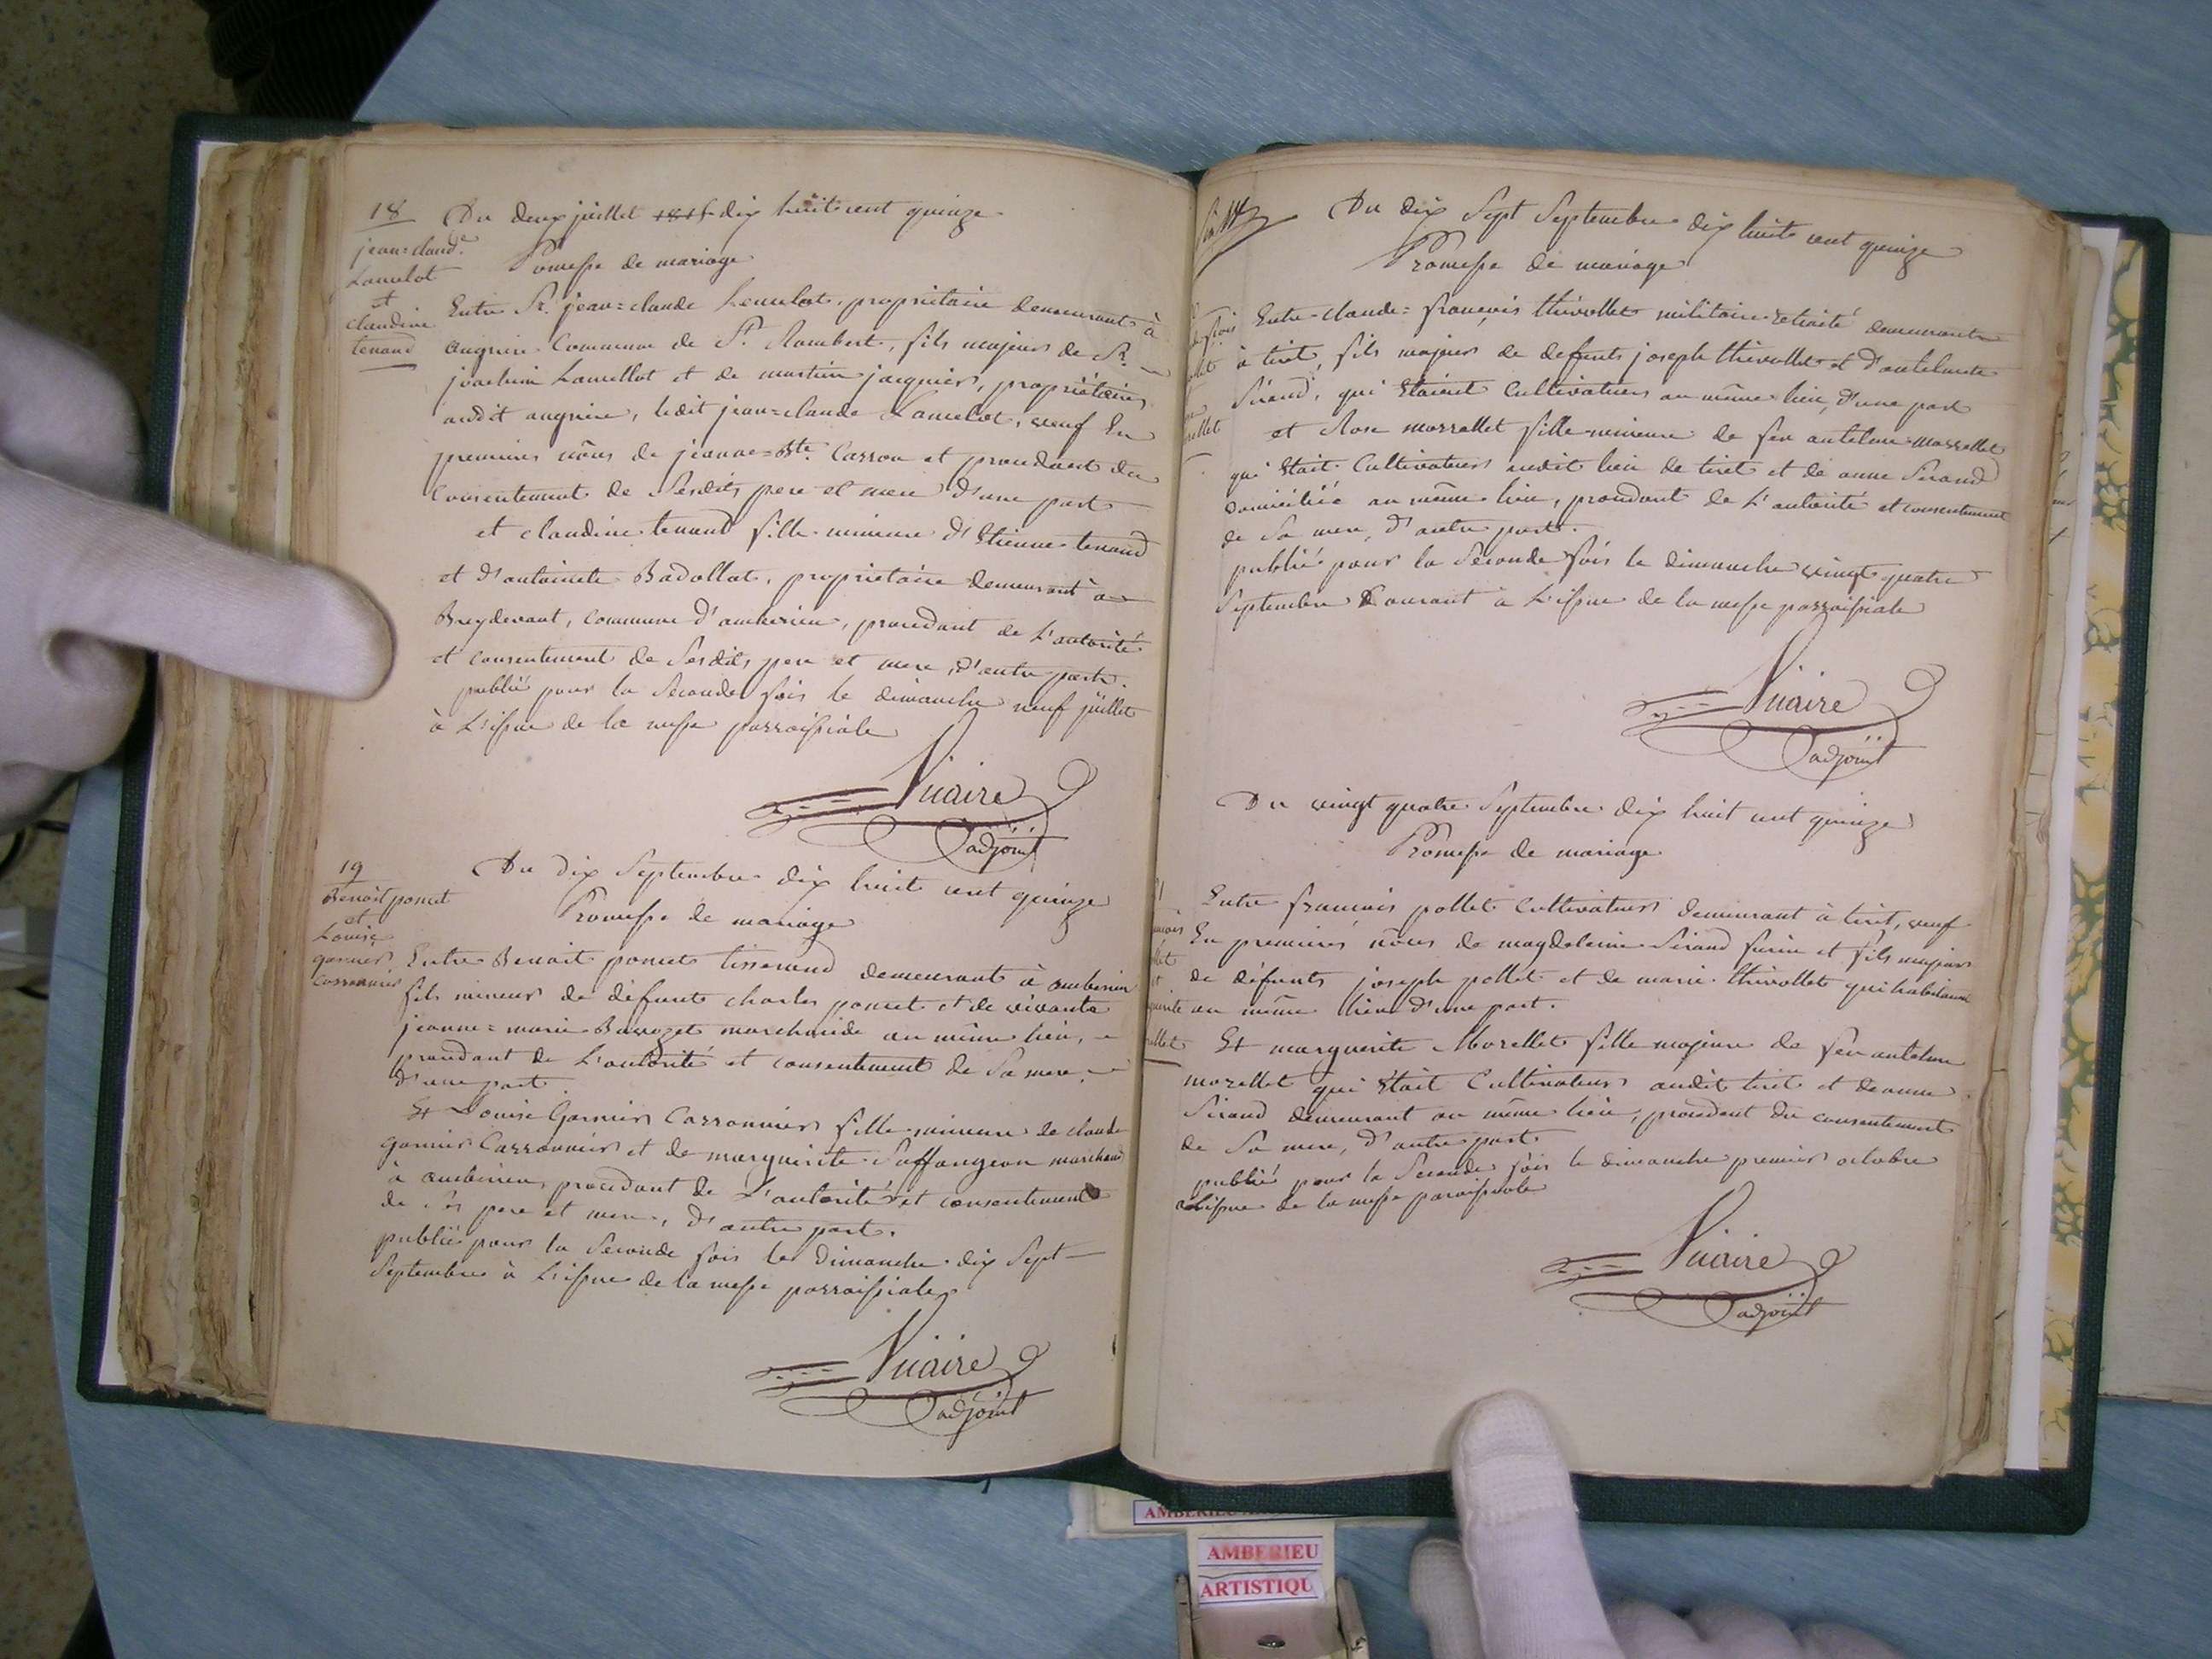 18
Du deux juillet 1815 dix huit cent quinze
Promesse de mariage
jean=claude
Lamelot
et
claudine
tenand
Entre Sr. jean=claude Lamelot, propriétaire demeurant à
angrier Commune de St. Rambert, fils majeur de Sr.
joachim Lamellot et de jacquier, propriétaires
audit angriere, ledit jean=claude Lamelot, veuf En
premieres nôces de jeanne=Bte. Carron et procedant du
Consentement de Sesdits pere et mere d'une part
et claudine tenand fille mineure d'Etienne tenand
et d'antoinette Badollat, propriétaire demeurant à
Breydevant, commune d'amberieu, procedant de L'autorité
et consentement de Sesdits pere et mere, d'autre part.
publié pour la Seconde fois le dimanche neuf juillet
à L'issue de la messe parroissiale
Vuaire
adjoint
19
Du dix Septembre dix huit cent quinze
Promesse de mariage
Benoit poncet
et
Louise
garnier
Carronnier
Entre Benoit poncet tisserand demeurant à amberieu
fils mineur de défunt charles poncet et de vivante
jeanne=marie marchande au même lieu,
procedant de L'autorité et consentement de Sa mere,
d'une part
Et Louise Garnier Carronnier fille mineure de claude
garnier Carronnier et de marguerite Suffangeon marchand
à amberieu, procedant de L'autorité et consentement
de Ses pere et mere, d'autre part.
publié pour la Seconde fois le Dimanche dix Sept
Septembre à L'issue de la messe parroissiale
Vuaire
adjoint
Du dix Sept Septembre dix huit cent quinze
Promesse de mariage
Entre claude=françois thivollet militaire retraité demeurant
à tiret, fils majeur de defunts joseph thivollet et d'antelmette
Sirand, qui Etaient Cultivateurs au même lieu, d'une part
et Rose morrellet fille mineure de feu antelme morrellet
qui Etait Cultivateur audit lieu de tiret et de anne Sirand
domiciliée au même lieu, procedant de L'autorité et consentement
de Sa mere, d'autre part.
publié pour la Seconde fois le dimanche vingt quatre
Septembre Courant à L'issue de la messe parroissiale
Vuaire
adjoint
Du vingt quatre Septembre dix huit cent quinze
Promesse de mariage
Entre francois pollet Cultivateur demeurant à tiret, veuf
En premieres nôces de magdelaine Sirand et fils majeur
de défunts joseph pollet et de marie thivollet qui habitaient
au même lieu d'une part.
Et marguerite Morellet fille majeure de feu antelme
morellet qui Etait Cultivateur audit tiret et de anne
Sirand demeurant au même lieu, procedant du consentement
de Sa mere, d'autre part
publié pour la Seconde fois le dimanche premier octobre
à L'issue de la messe paroissiale
Vuaire
adjoint
AMBERIEU
ARTISTIQU